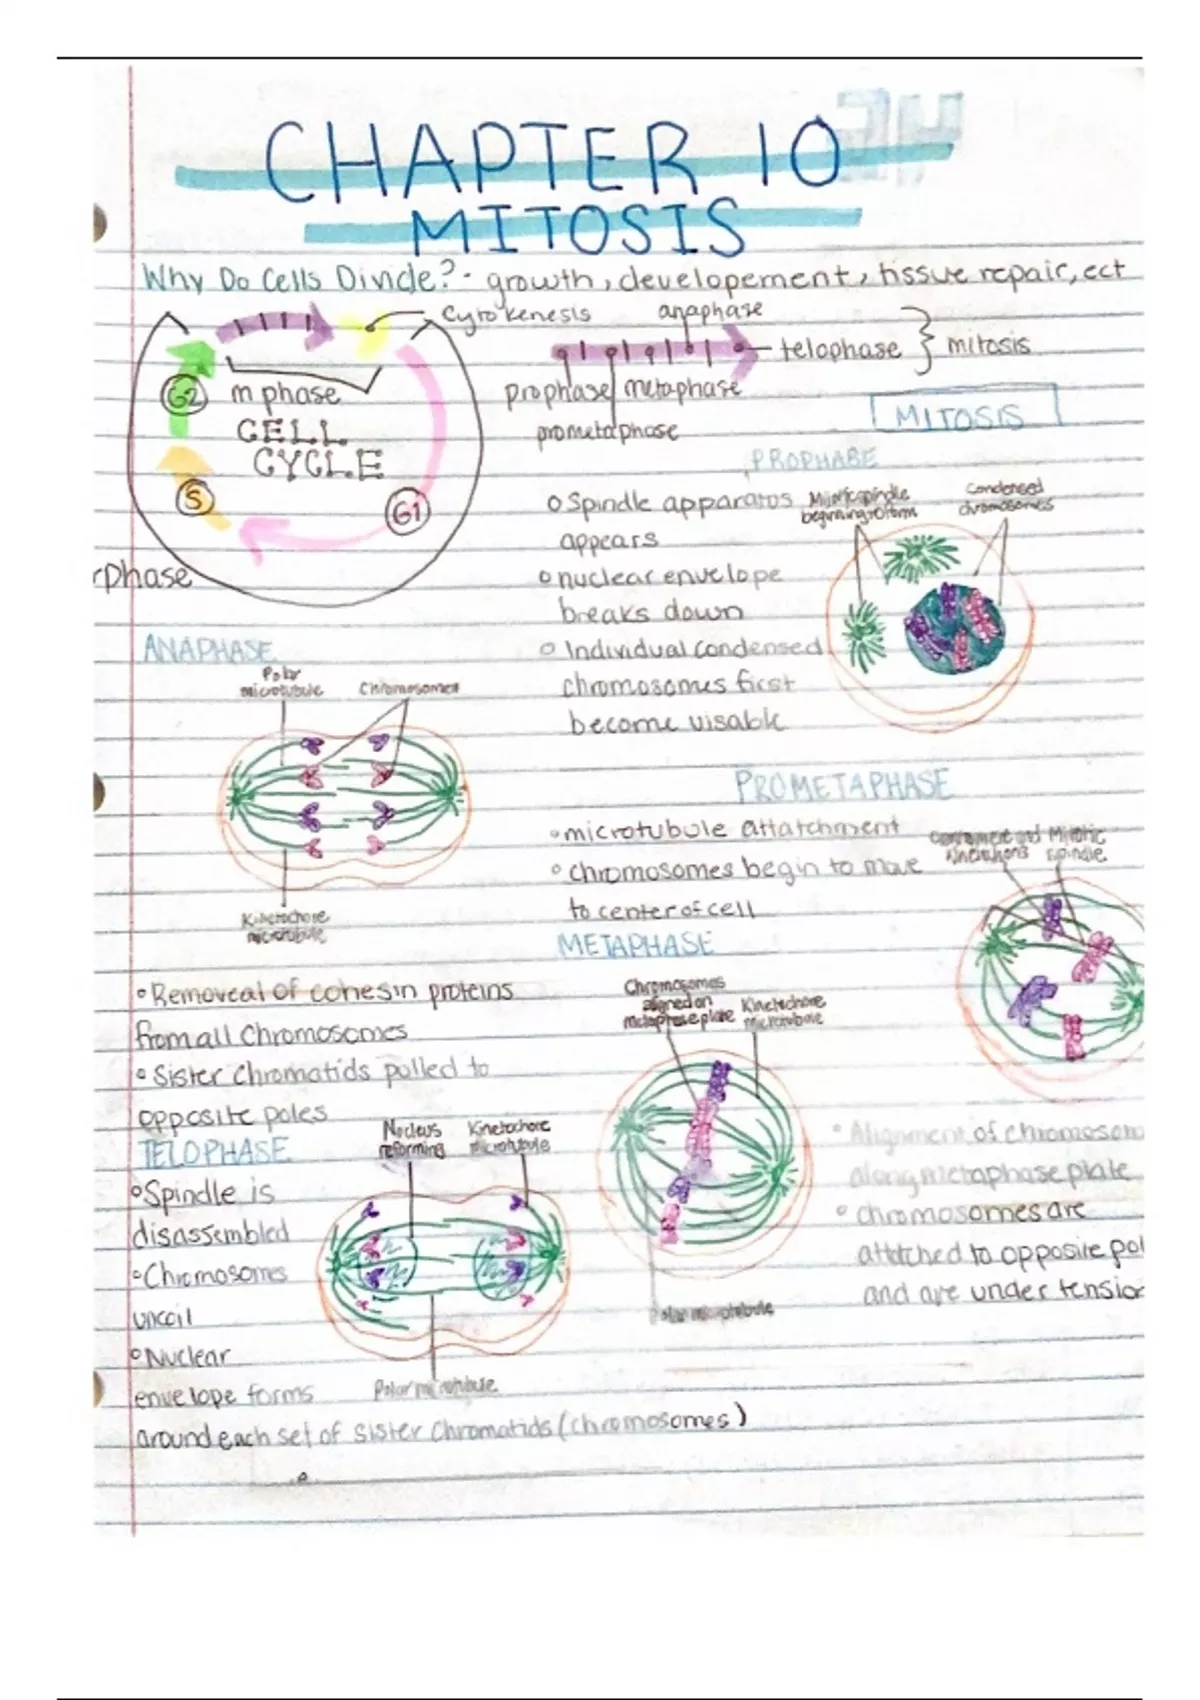 CHAPTER 10
MITOSIS
Why Do Cells Divide? - growth, developement, tissue repair, ect
Cytokenesis
anaphase
telophase } mitosis
prophase metaphase
prometaphase
G2
m phase
CELL
CYCLE
S
G1
rphase
MITOSIS
PROPHASE
o Spindle apparatus
appears
o nuclear envelope
breaks down
o Individual condensed
chromosomes first
become visable
Mitotic spindle
beginning to form
Condensed
chromosomes
ANAPHASE
Polar
microtubule
Chromosomes
Kinetochore
microtubule
PROMETAPHASE
o microtubule attatchment
o chromosomes begin to move
to center of cell
and Mitotic
spindle
METAPHASE
o Removeal of cohesin proteins
from all Chromosomes
o Sister Chromatids pulled to
opposite poles
Chromosomes
aligned on
metaphase plate
Kinetochore
microtubule
Polar microtubule
o Alignment of chromosom
along metaphase plate
o chromosomes are
attatched to opposite pol
and are under tension
TELOPHASE
o Spindle is
disassembled
o Chromosomes
uncoil
o Nuclear
envelope forms
around each set of Sister Chromatids (chromosomes)
Nucleus
reforming
Kinetochore
microtubule
Polar microtubule